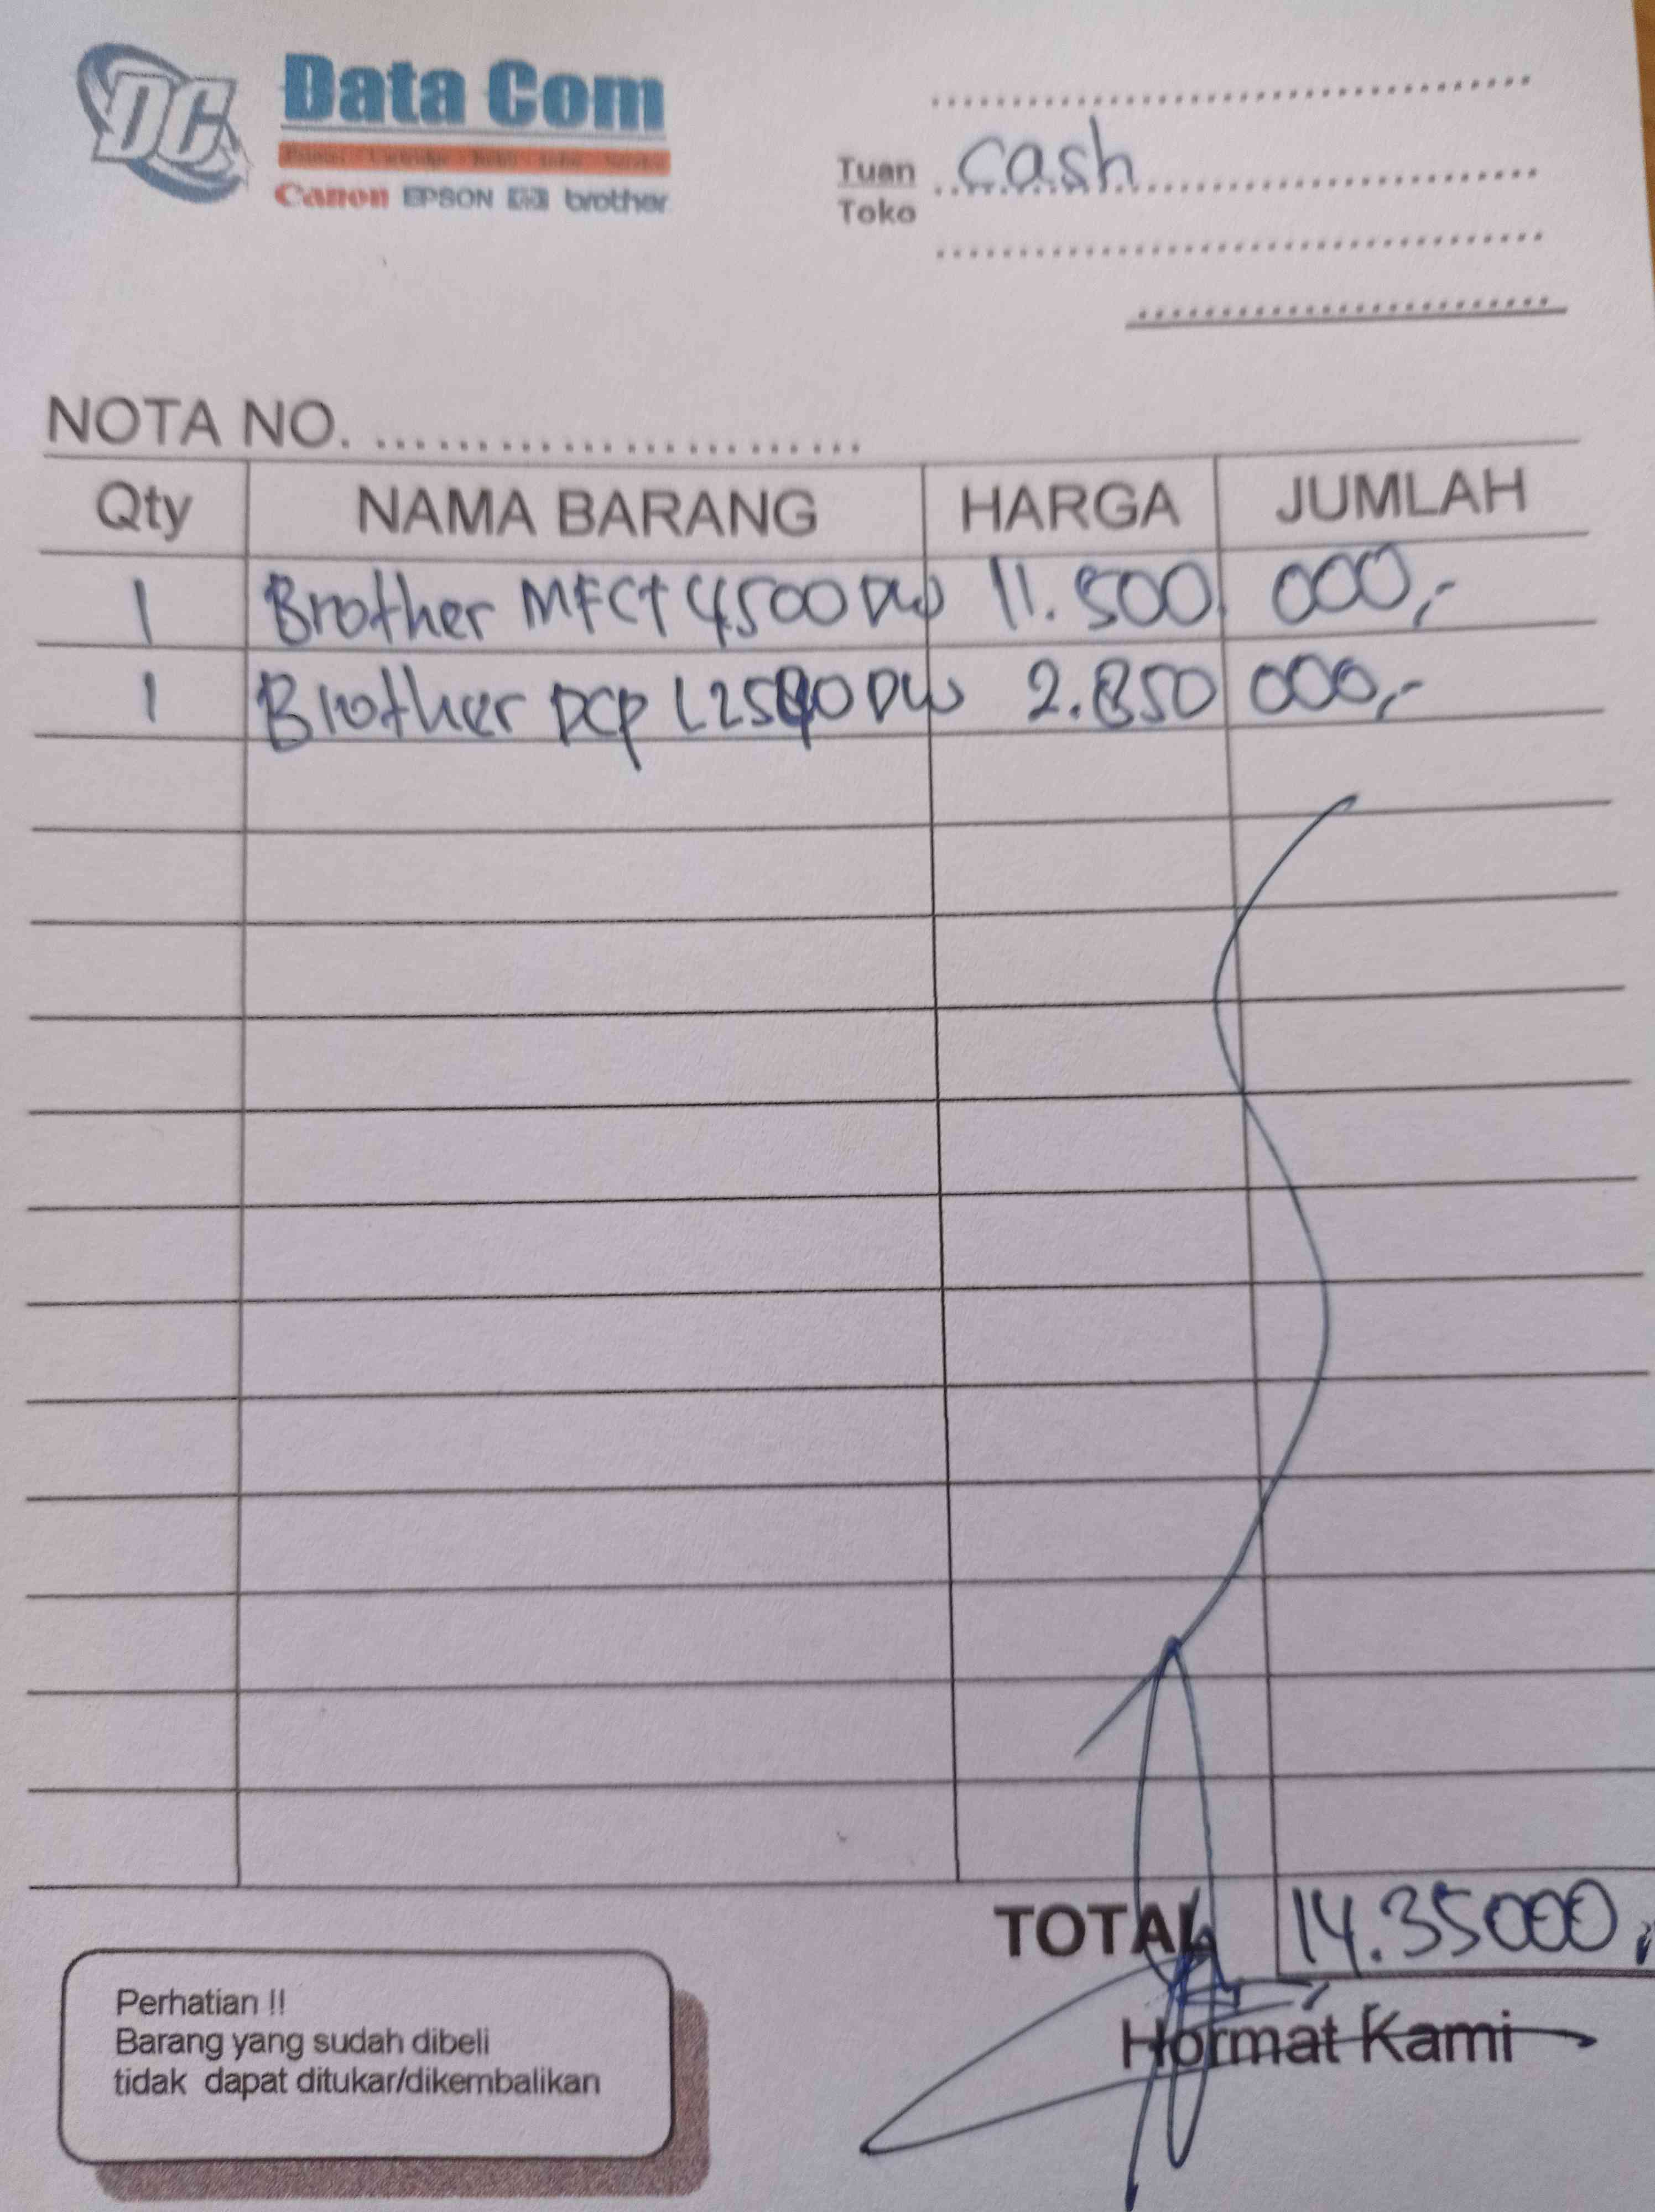 DC Data Com
Printer - Cartridge - Refill - Infus - Service
Canon EPSON hp brother
Tuan cash
Toko
NOTA NO.
Qty NAMA BARANG HARGA JUMLAH
1 Brother MFCT 4500 DW 11.500 000,-
1 Brother DCP L2540 DW 2.850 000,-
TOTAL 14.35000,
Hormat Kami
Perhatian !!
Barang yang sudah dibeli
tidak dapat ditukar/dikembalikan